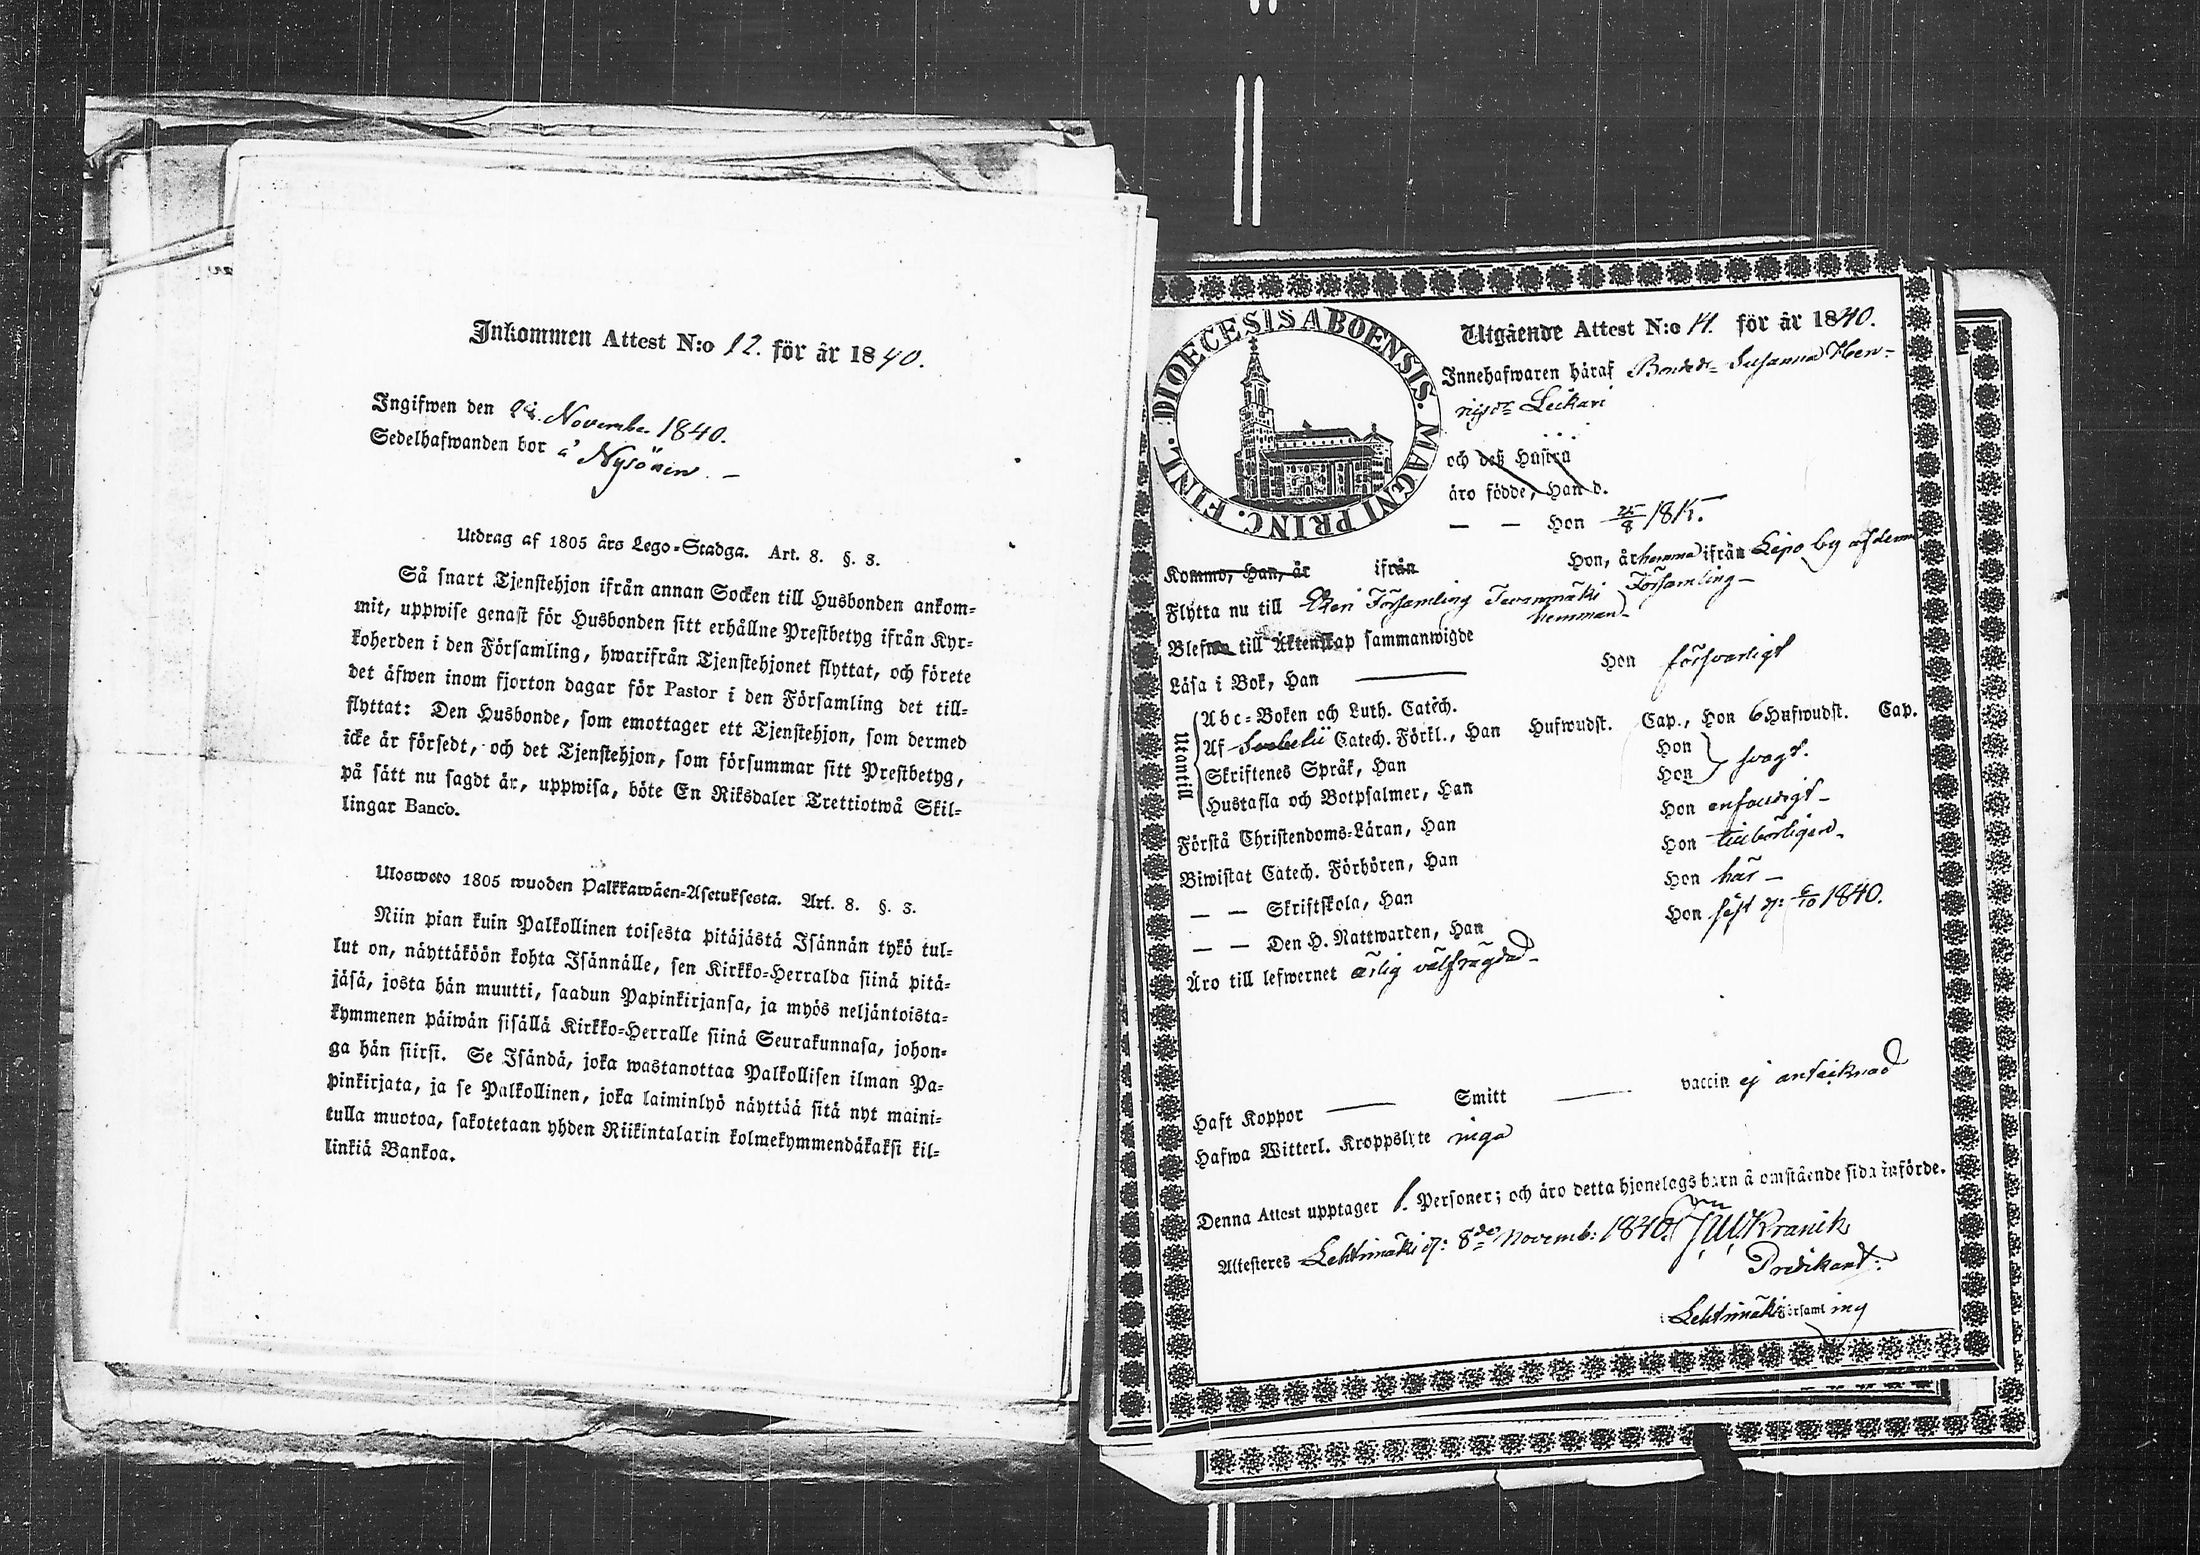 Inkommen Attest N:o 12. för år 1840.
Ingifwen den November 1840.
Sedelhafwanden bor å Nysönen. –
Utdrag af 1805 års Lego-Stadga. Art. 8. §. 3.
Så snart Tjenstehjon ifrån annan Socken till Husbonden ankom-
mit, uppwise genast för Husbonden sitt erhållne Prestbetyg ifrån Kyr-
koherden i den Församling, hwarifrån Tjenstehjonet flyttat, och förete
det äfwen inom fjorton dagar för Pastor i den Församling det till-
flyttat: Den Husbonde, som emottager ett Tjenstehjon, som dermed
icke är försedt, och det Tjenstehjon, som försummar sitt Prestbetyg,
på sätt nu sagdt är, uppwisa, böte En Riksdaler Trettiotwå Skil-
lingar Banco.
Ulosweto 1805 wuoden Palkkawäen-Asetuksesta. Art. 8. §. 3.
Niin pian kuin Palkollinen toisesta pitäjästä Isännän tykö tul-
lut on, näyttäköön kohta Isännälle, sen Kirkko-Herralda siinä pitä-
jäsä, josta hän muutti, saadun Papinkirjansa, ja myös neljäntoista-
kymmenen päiwän sisällä Kirkko-Herralle siinä Seurakunnasa, johon-
ga hän siirsi. Se Isändä, joka wastanottaa Palkollisen ilman Pa-
pinkirjata, ja se Palkollinen, joka laiminlyö näyttää sitä nyt maini-
tulla muotoa, sakotetaan yhden Riikintalarin kolmekymmendäkaksi kil-
linkiä Bankoa.
DIOECESIS ABOENSIS. MAGNI PRINC. FINL.
Utgående Attest N:o 14. för år 1840.
Innehafwaren häraf Bondedr Susanna Hen-
rigsdr Leikari
och deß Hustru
äro födde, Han d.
— — Hon 25/8 1815.
Kommo, Han, år ifrån Hon, år hemma ifrån Lipo by af denna
Församling –
Flytta nu till Etzeri Församling
hemman –
Blefwo till Äktenskap sammanwigde
Läsa i Bok, Han —— Hon försvarligt
Utantill
Abc-Boken och Luth. Catech.
Af Svebelii Catech. Förkl., Han Hufwudst. Cap., Hon 6 Hufwudst. Cap.
Skriftenes Språk, Han Hon
Hustafla och Botpsalmer, Han Hon svagt.
Förstå Christendoms-Läran, Han Hon enfaldigt –
Biwistat Catech. Förhören, Han Hon tillbörligen –
— — Skriftskola, Han Hon här –
— — Den H. Nattwarden, Han Hon sist d: 6/10 1840.
Äro till lefwernet ärlig välfrägdad –
Haft Koppor —— Smitt —— vaccin ej antecknad
Hafwa Witterl. Kroppslyte inga
Denna Attest upptager 1. Personer; och äro detta hjonelags barn å omstående sida införde.
Attesteres Lehtimäki d: 8de Novemb: 1840. J. W. Kranik
Predikant.
Lehtimäki Församling